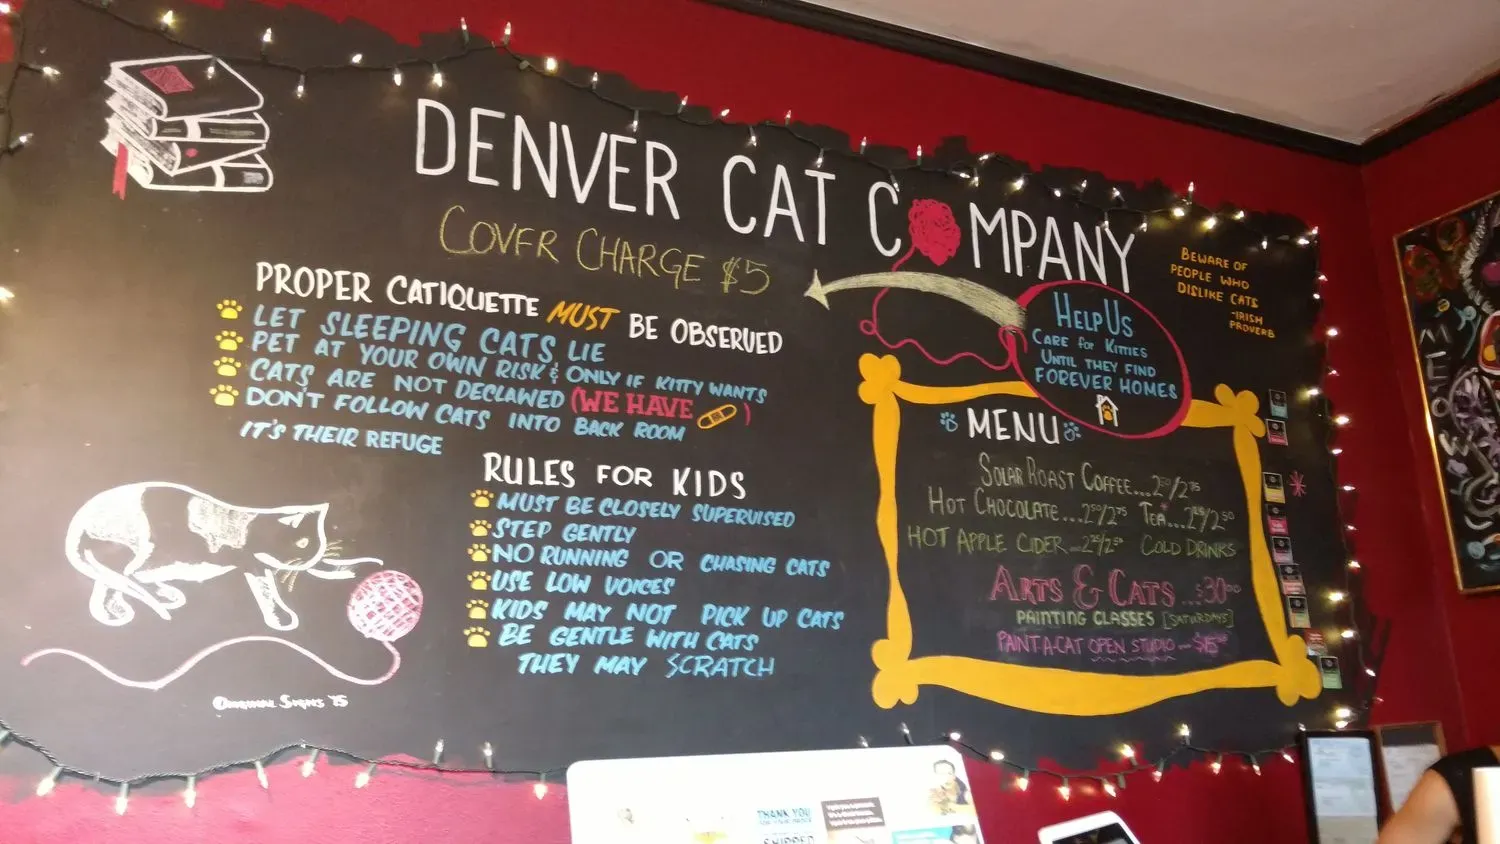 DENVER CAT COMPANY
COVER CHARGE $5
PROPER CATIQUETTE MUST BE OBSERVED
LET SLEEPING CATS LIE
PET AT YOUR OWN RISK & ONLY IF KITTY WANTS
CATS ARE NOT DECLAWED (WE HAVE )
DON'T FOLLOW CATS INTO BACK ROOM
IT'S THEIR REFUGE
RULES FOR KIDS
MUST BE CLOSELY SUPERVISED
STEP GENTLY
NO RUNNING OR CHASING CATS
USE LOW VOICES
KIDS MAY NOT PICK UP CATS
BE GENTLE WITH CATS
THEY MAY SCRATCH
SIGNS '15
BEWARE OF
PEOPLE WHO
DISLIKE CATS
-IRISH
PROVERB
HELP US
CARE for KITTIES
UNTIL THEY FIND
FOREVER HOMES
MENU
SOLAR ROAST COFFEE...2⁵⁰/2⁷⁵
HOT CHOCOLATE...2⁵⁰/2⁷⁵ TEA...2²⁵/2⁵⁰
HOT APPLE CIDER...2²⁵/2⁵⁰ COLD DRINKS
ARTS & CATS...$30⁰⁰
PAINTING CLASSES [SATURDAYS]
PAINT-A-CAT OPEN STUDIO - $15⁰⁰
MEOW
THANK YOU
SHIPPED